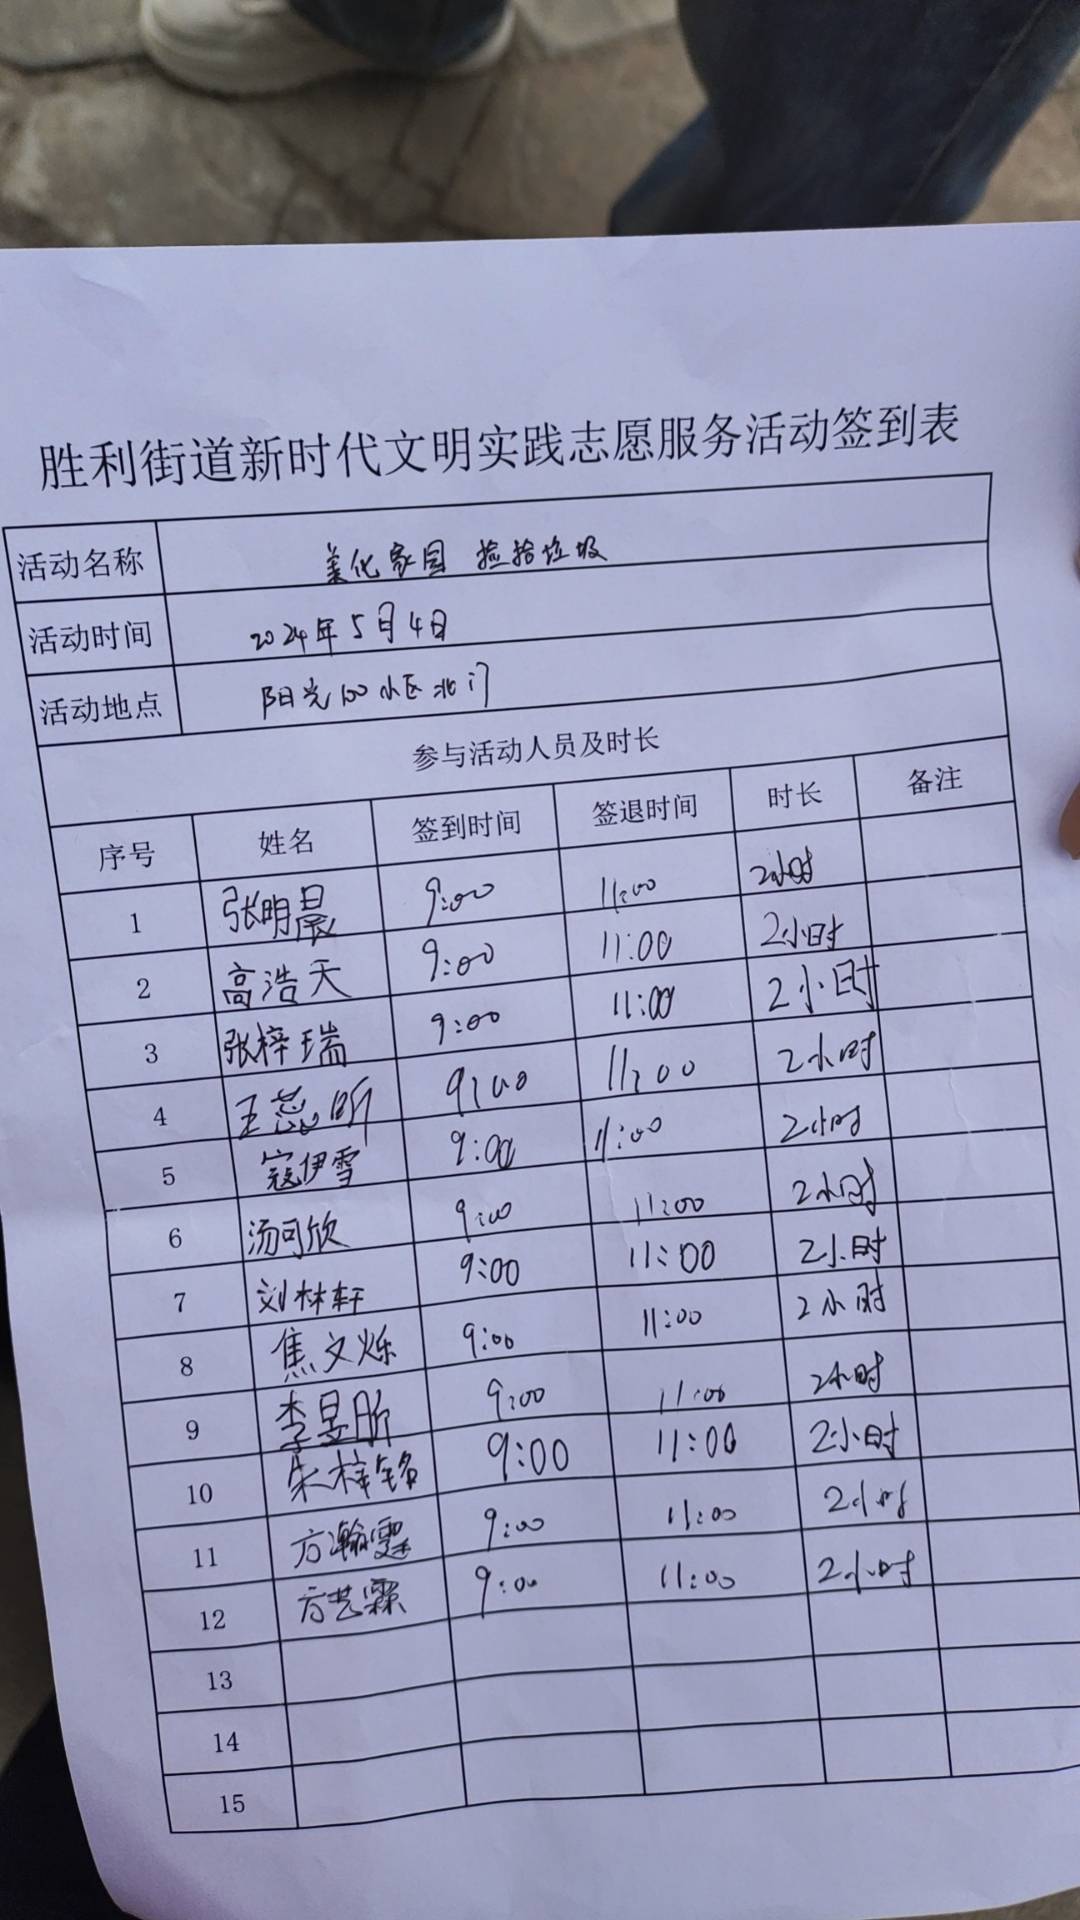 胜利街道新时代文明实践志愿服务活动签到表
活动名称 美化家园 捡拾垃圾
活动时间 2024年5月4日
活动地点 阳光100小区北门
参与活动人员及时长
序号 姓名 签到时间 签退时间 时长 备注
1 张明晨 9:00 11:00 2小时
2 高浩天 9:00 11:00 2小时
3 张梓瑞 9:00 11:00 2小时
4 王蕊昕 9:00 11:00 2小时
5 寇伊雪 9:00 11:00 2小时
6 汤可欣 9:00 11:00 2小时
7 刘林轩 9:00 11:00 2小时
8 焦文烁 9:00 11:00 2小时
9 李昱昕 9:00 11:00 2小时
10 朱梓铭 9:00 11:00 2小时
11 方瀚霆 9:00 11:00 2小时
12 方艺霖 9:00 11:00 2小时
13
14
15